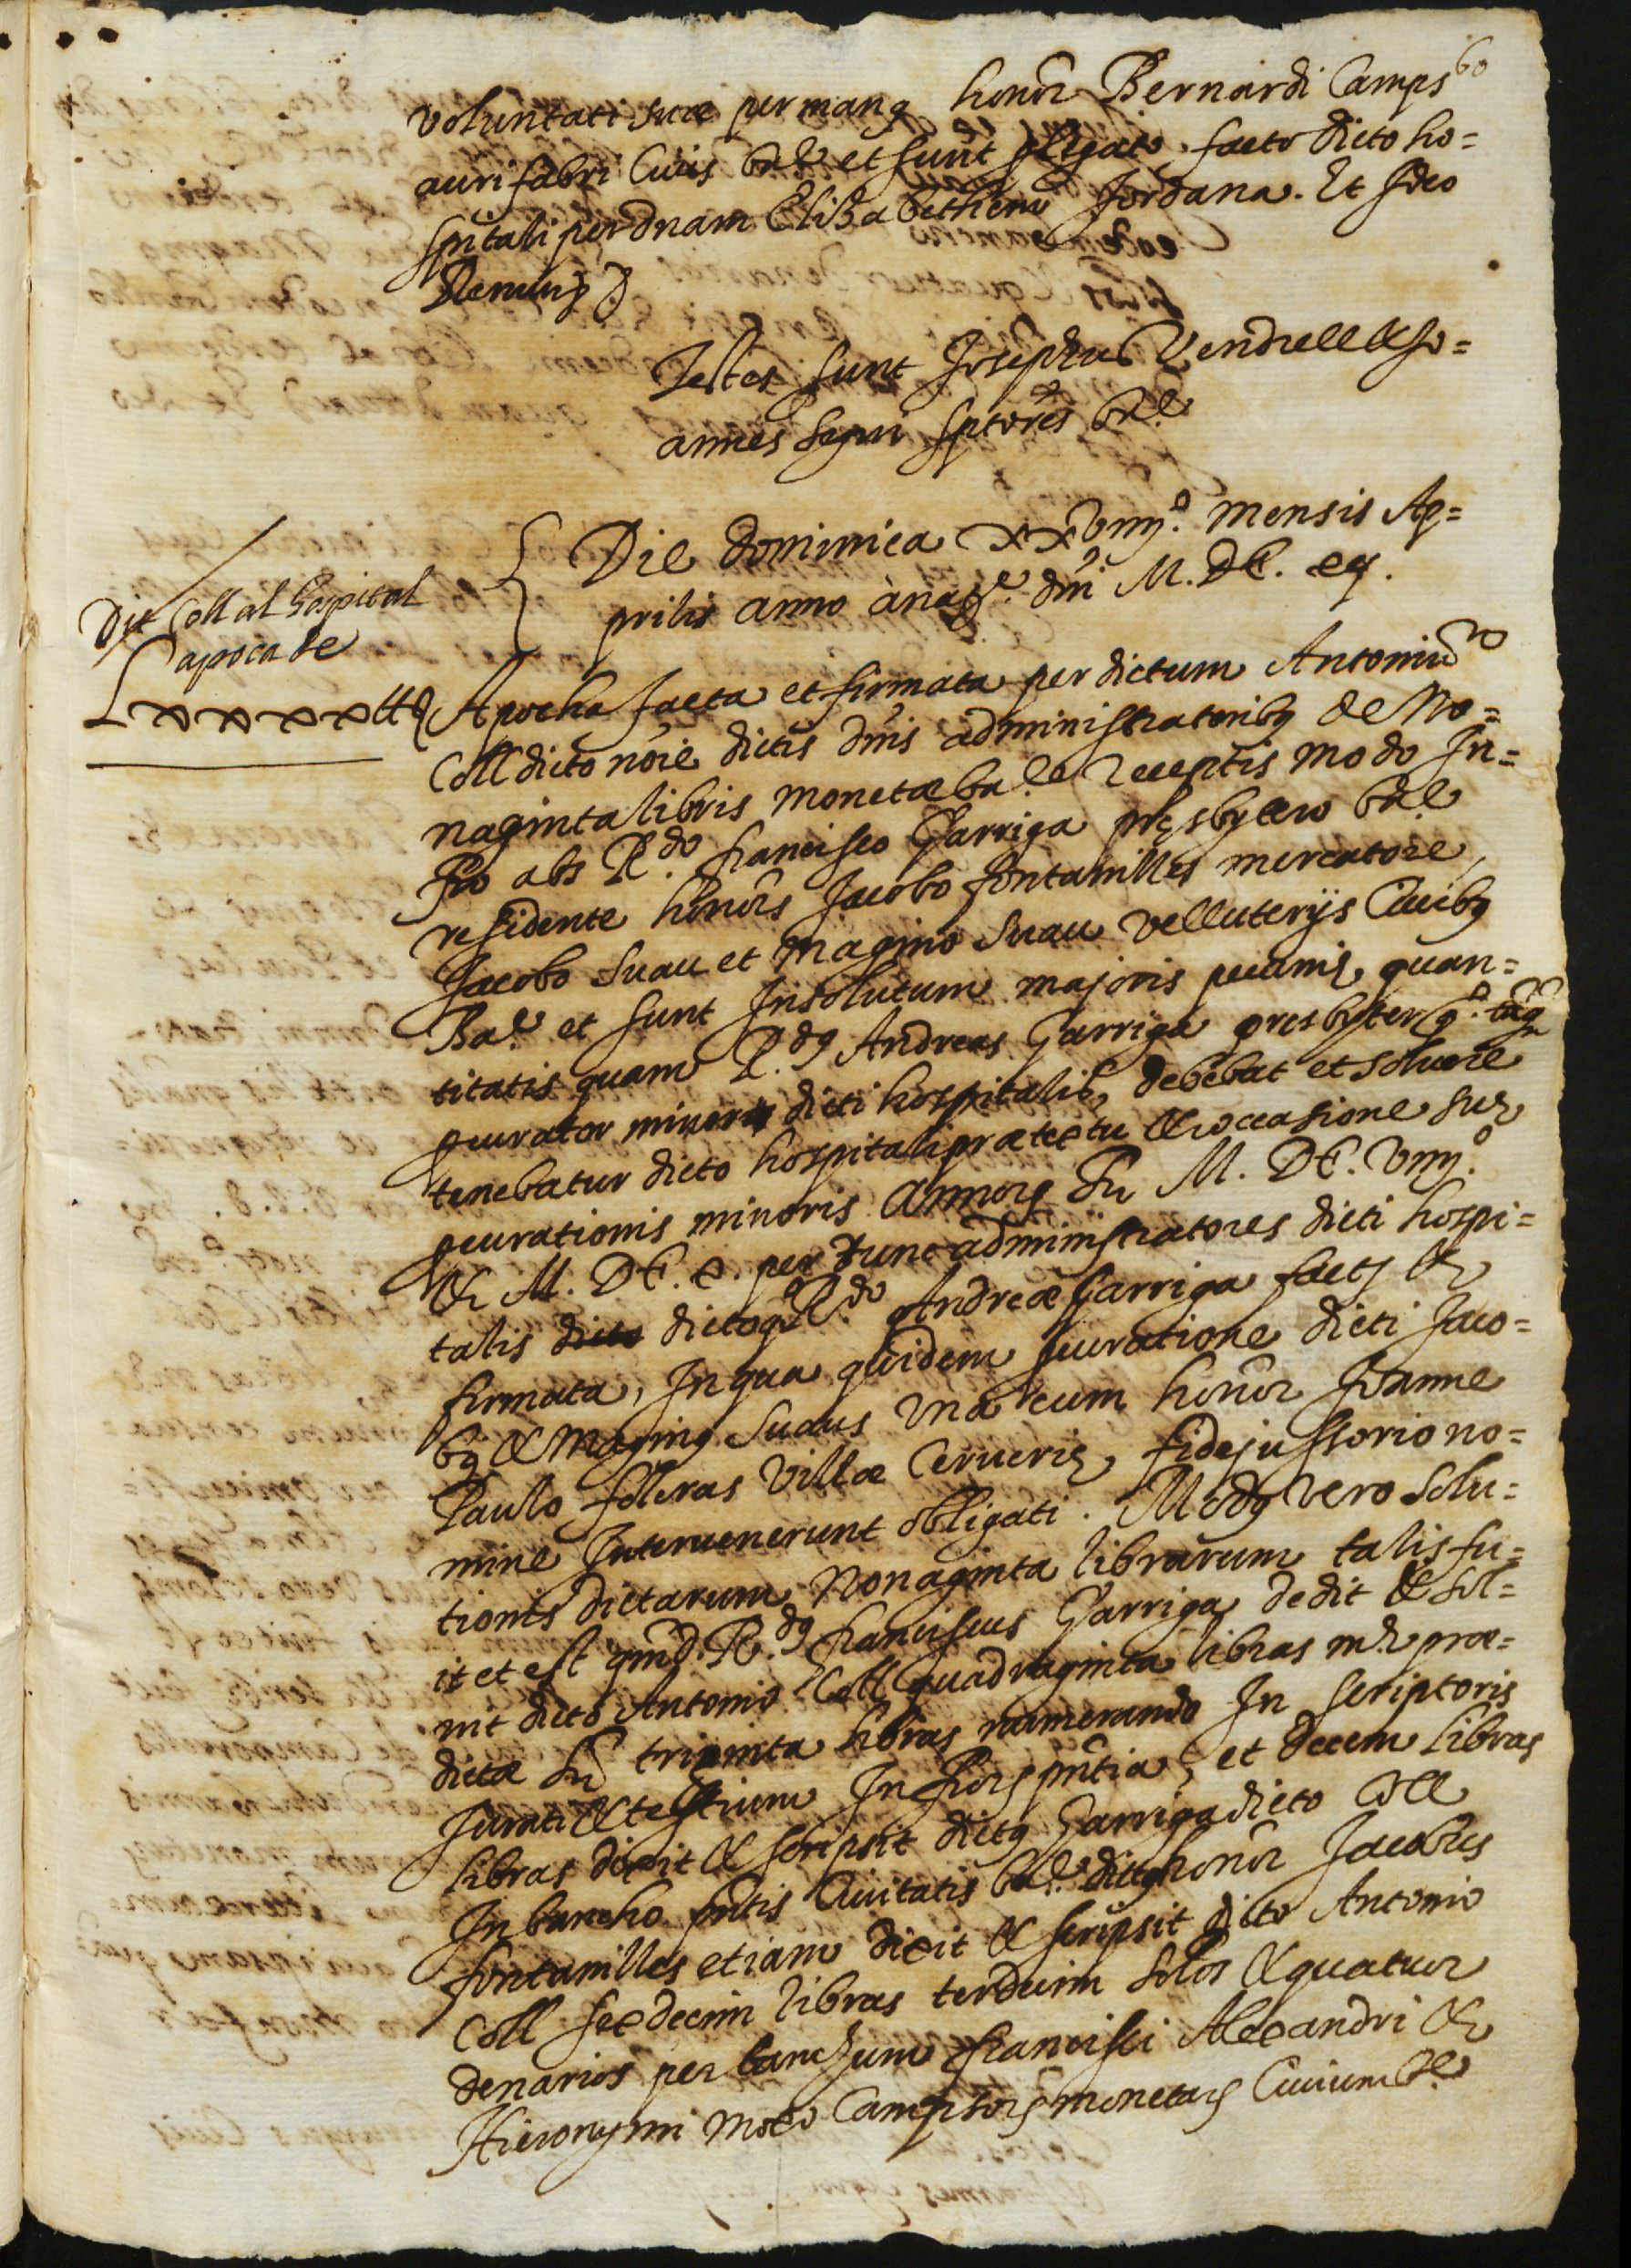 60
voluntati suæ per manꝯ honor Bernardi Camps
aurifabri Ciuis bar.e et sunt p legato facto dicto ho=
spitali per dnam Elisabethem Jordana. Et ideo
Renunꝯ &
Testes sunt Josephus Vendrell & Jo=
annes Segui sptores bar.e
Die dominica xxviiij.o mensis Ap=
prilis anno à nat.e dni M. DC.
Dit Coll al hospital
apoca de
Lxxxx ll
Apocha facta et firmata per dictum Antoniu
Coll dicto noie dictis dnis administratoribꝯ de No=
naginta libris monetæ bar.e receptis modo In=
fro abs R.do francisco Garriga presbytero bar.e
residente honors Jacobo fontanilles mercatore,
Jacobo Suau et magino Suau velluterijs Ciuibꝯ
Bar.e et sunt Insolutum majoris pecunię quan=
titatis quam R.dꝯ Andreas Garriga presbyter q.o taꝗ
pcurator minor dicti hospitalis, debebat et soluere
tenebatur dicto hospitali prætextu & occasione suę
pcurationis minoris Annorꝝ M. DC. viiij.o
& M. DC. x. per tunc administratores dicti hospi=
talis dicto dicto q.o R.do Andreæ Garriga factę &
firmata, In qua quidem pcuratione dicti Jaco=
bꝯ & Maginꝯ Suaus Una cum honor Joanne
Paulo folcras villæ Ceruerię, fidejussorio no=
mine Interuenerunt obligati. Modꝯ vero Solu=
tionis dictarum Nonaginta librarum talis fu=
it et est qm d. R.dꝯ franciscus Garriga dedit & sol=
uit dicto Antonio Coll quadraginta libras m.e præ=
dictæ triginta libras numerando In scriptoris
Jurati & testium Infrorꝝ pntia, et decem libras
libras dixit & scripsit dictꝯ Garriga dicto Coll
In bancho pntis Ciuitatis bar.e dictꝯ honor Jacobus
fontanilles etiam dixit & scripsit dicto Antonio
Coll sexdecim libras terdecim solos & quatuor
denarios per banchum francisci Alexandri &
Hieronymi Moxo Campsorꝝ monetarꝝ Ciuium bar.e